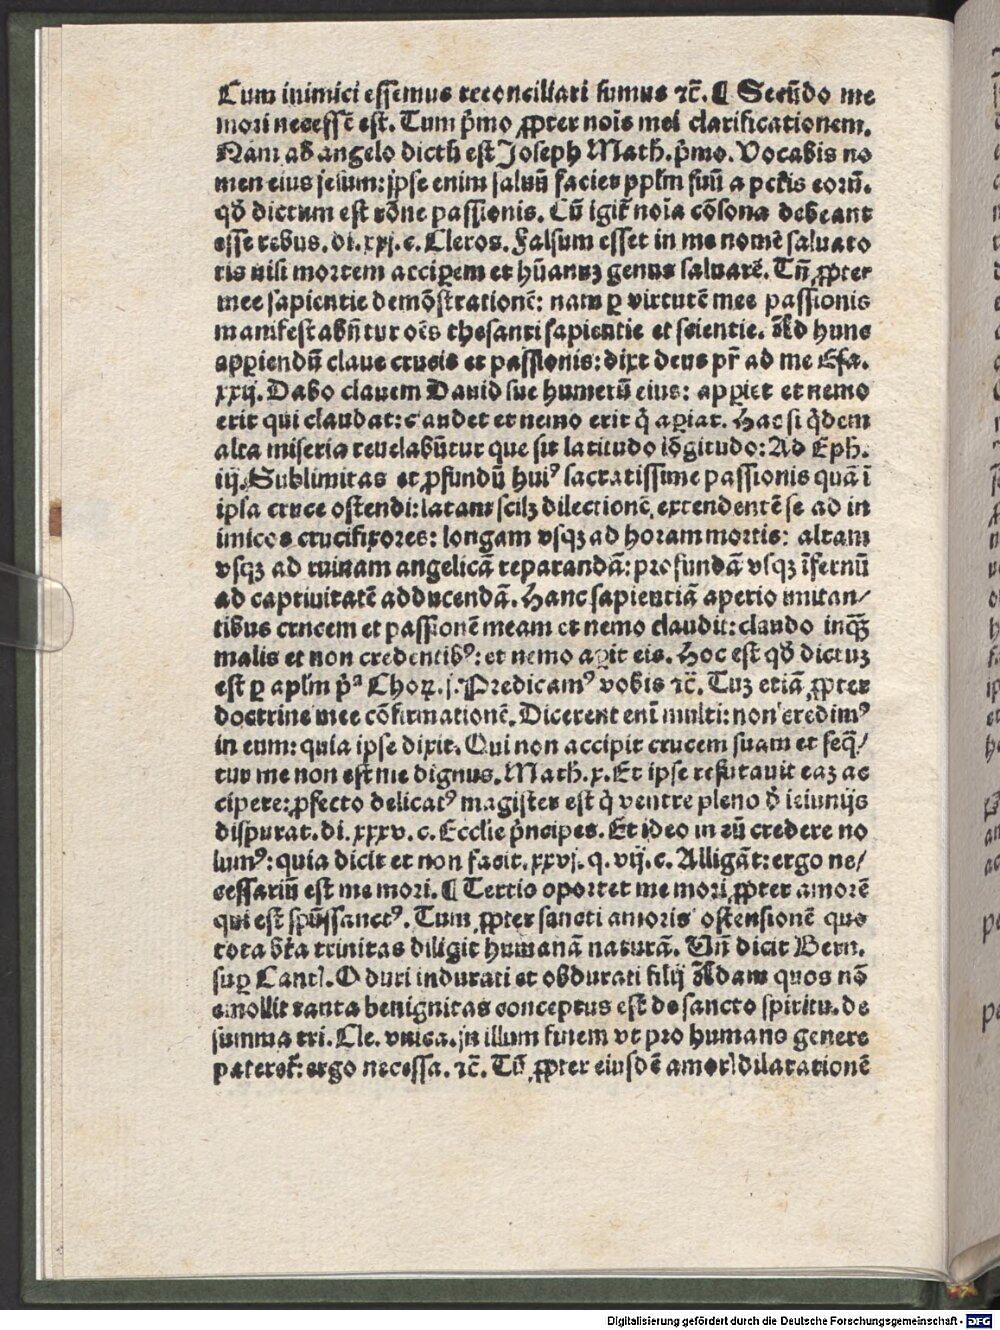 Cum inimici essemus reconciliati sumus ⁊c̃. ¶ Secũdo me
mori necessẽ est. Tum p̃mo ꝓpter nois̃ mei clarificationem.
Nam ab angelo dictũ est Joseph Math. p̃mo. Vocabis no
men eius jesum: jpse enim saluũ faciet pplm̃ suũ a pctĩs eorũ.
qđ dictum est rõne passionis. Cũ igit̃ noĩa cõsona debeant
esse rebus. di. xxj. c. Cleros. Falsum esset in me nomẽ saluato
ris nisi mortem acciꝑem et hũanuꝫ genus saluarẽ. Tñ ꝓpter
mee sapientie demõstrationẽ: nam ꝑ virtutẽ mee passionis
manifestabñtur oẽs thesauri sapientie et scientie. Ad hunc
apꝑiendũ claue crucis et passionis: dixt deus pr̃ ad me Esa.
xxij. Dabo clauem Dauid suꝑ humerũ eius: apꝑiet et nemo
erit qui claudat: c audet et nemo erit q̃ aꝑiat. Hac si q̃dem
alta miseria reuelabũtur que sit latitudo lõgitudo: Ad Eph.
iij. Sublimitas et ꝓfundũ huiꝰ sacratissime passionis quã ĩ
ipsa cruce ostendi: latam scilꝫ dilectionẽ extendentẽ se ad in
imicos crucifixores: longam vsqꝫ ad horam mortis: altam
vsqꝫ ad ruinam angelicã reparandã: profundã vsqꝫ ĩfernũ
ad captiuitatẽ adducendã. Hanc sapientiã aperio imitan/
tibus crucem et passionẽ meam et nemo claudit: claudo inqꝫ̃
malis et non credentibꝰ: et nemo apit eis. Hoc est qđ dictuꝫ
est ꝑ aplm̃ p̃ᵃ Choꝝ. j. Predicamꝰ vobis ⁊c̃. Tuꝫ etiã ꝓpter
doctrine mee cõfirmationẽ. Dicerent enĩ multi: non credimꝰ
in eum: quia ipse dixit. Qui non accipit crucem suam et seq̃/
tur me non est me dignus. Math. x. Et ipse refutauit eaꝫ ac
cipere: ꝓfecto delicatꝰ magister est q̃ ventre pleno đ ieiunijs
disputat. di. xxxv. c. Ecclie p̃ncipes. Et ideo in eũ credere no
lumꝰ: quia dicit et non facit. xxvj. q. vij. c. Alligãt: ergo ne/
cessariũ est me mori. ¶ Tertio oportet me mori ꝓpter amorẽ
qui est spũssanctꝰ. Tum ꝓpter sancti amoris ostensionẽ quo
tota bt̃a trinitas diligit humanã naturã. Vñ dicit Bern.
suꝑ Canti. O duri indurati et obdurati filij Adam quos nõ
emollit tanta benignitas conceptus est de sancto spiritu. de
summa tri. Cle. vnica. jn illum finem vt pro humano genere
pateret̃: ergo necessa. ⁊c̃. Tũ ꝓpter eiusdẽ amoris dilatationẽ
Digitalisierung gefördert durch die Deutsche Forschungsgemeinschaft - DFG